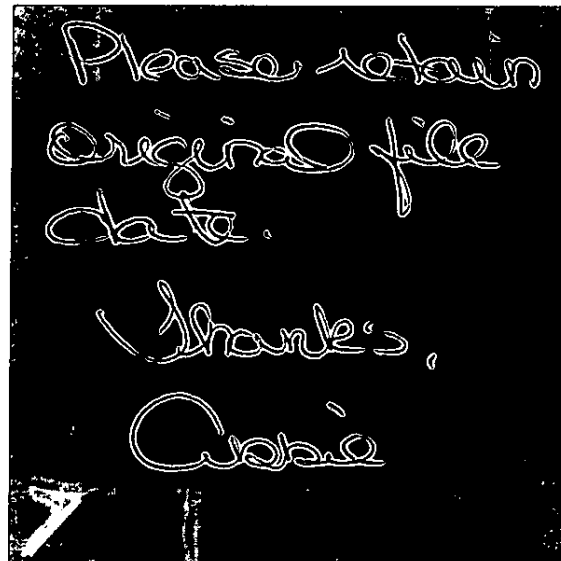 Please retain
original file
date.
Thanks,